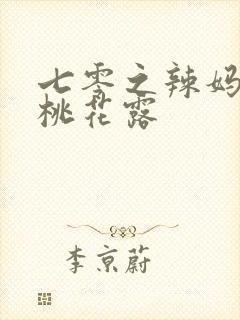 七零之辣妈
桃花露
李京蔚